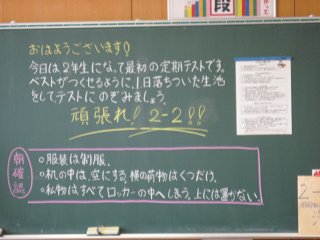 段
おはようございます!
今日は2年生になって最初の定期テストです。
ベストがつくせるように、1日落ちついた生活
をして、テストにのぞみましょう。
頑張れ! 2-2!!
朝確認
○服装は制服。
○机の中は、空にする。横の荷物はくつだけ。
○私物はすべてロッカーの中へしまう。上には置かない。